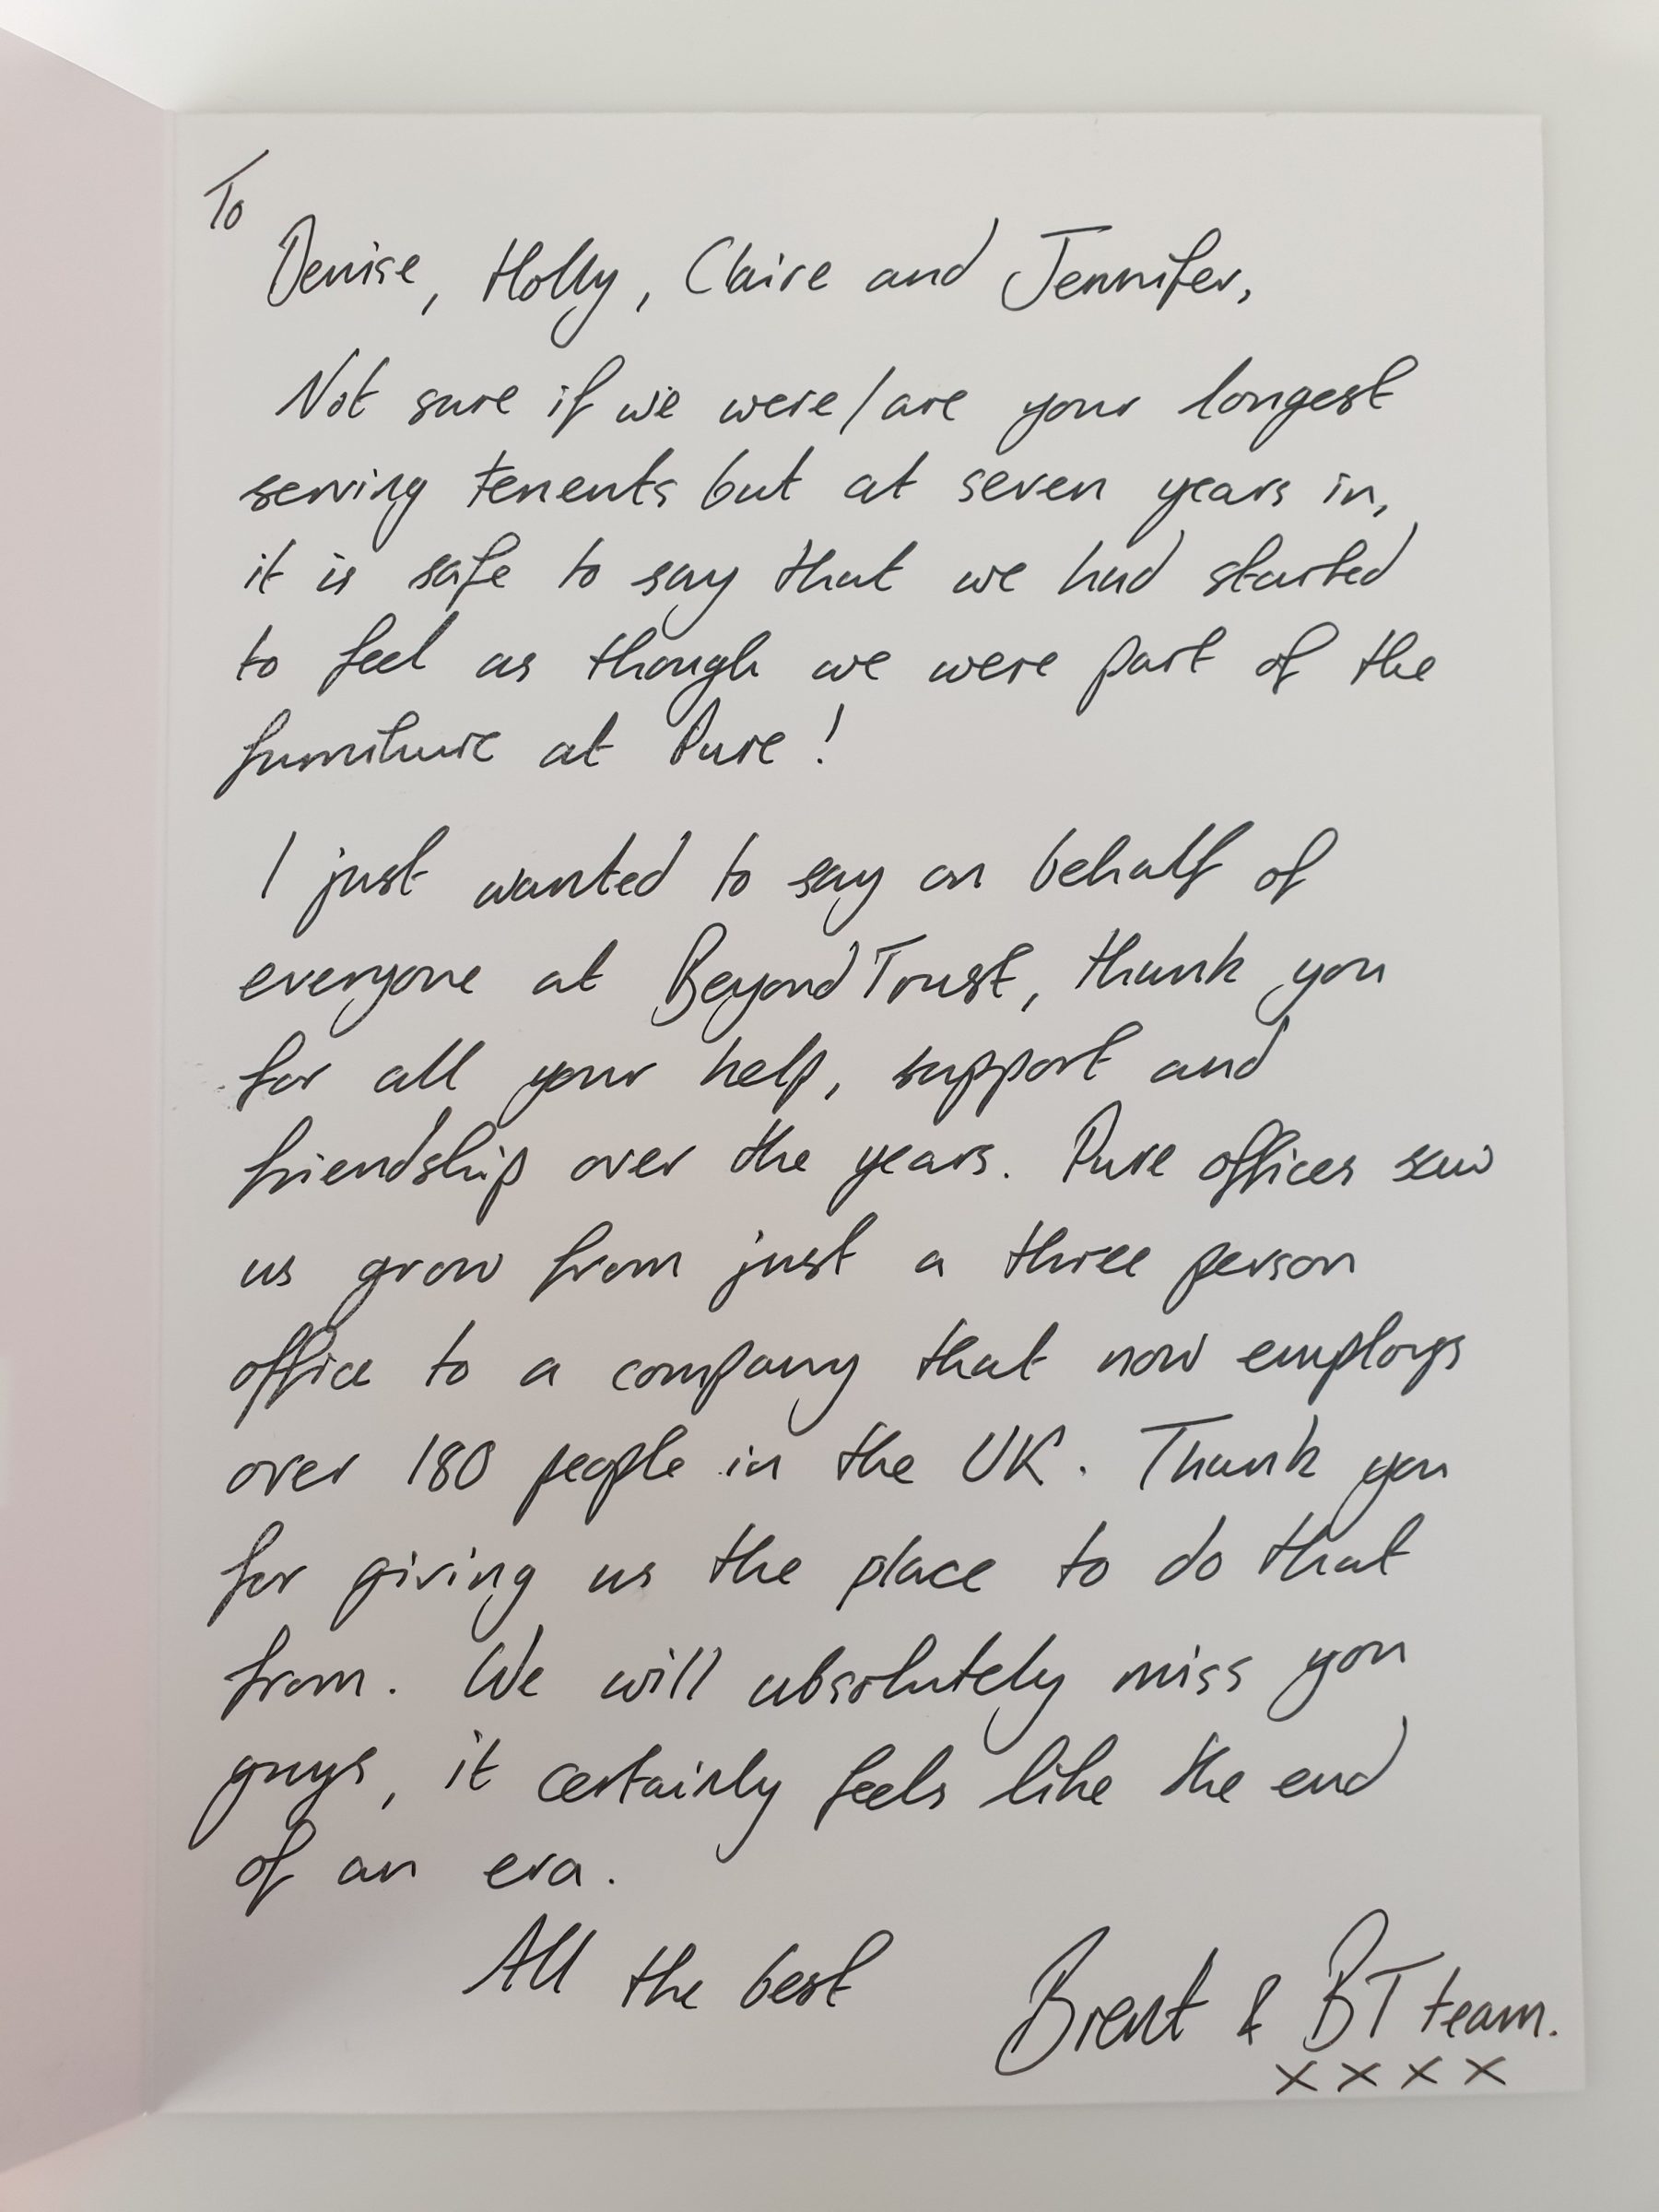 To
Denise, Holly, Claire and Jennifer,
Not sure if we were/are your longest
serving tenents but at seven years in,
it is safe to say that we had started
to feel as though we were part of the
furniture at Pure!
I just wanted to say on behalf of
everyone at BeyondTrust, thank you
for all your help, support and
friendship over the years. Pure offices saw
us grow from just a three person
office to a company that now employs
over 180 people in the UK. Thank you
for giving us the place to do that
from. We will absolutely miss you
guys, it certainly feels like the end
of an era.
All the best
Brent & BT team.
x x x x